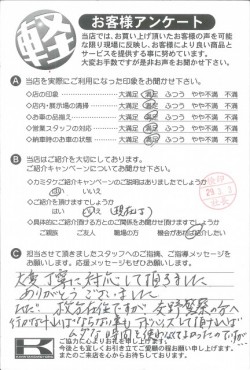 軽
お客様アンケート
当店では、お買い上げ頂いたお客様の声を可能
な限り現場に反映し、お客様により良い商品と
サービスを提供する事に努めています。
大変お手数ですが是非お声をお聞かせ下さい。
A 当店を実際にご利用になった印象をお聞かせ下さい。
◇店の印象 大満足 満足 ふつう やや不満 不満
◇店内・展示場の清掃 大満足 満足 ふつう やや不満 不満
◇お車の品揃え 大満足 満足 ふつう やや不満 不満
◇営業スタッフの対応 大満足 満足 ふつう やや不満 不満
◇納車時のお車の状態 大満足 満足 ふつう やや不満 不満
B 当店はご紹介を大切にしております。
ご紹介キャンペーンについてお聞かせ下さい。
◇カミタケご紹介キャンペーンのご説明はありましたでしょうか
はい いいえ
◇ご紹介頂けますでしょうか
はい いいえ
◇具体的にご紹介頂ける方とのご関係をお聞かせ頂けますでしょうか
ご親族 ご友人 職場の方 機会があれば紹介したい
C 担当させて頂きましたスタッフへのご指摘、ご指導メッセージを
お願いします。応援メッセージもぜひお願いします。
大変丁寧に対応して頂きました
ありがとうございました
ご協力に心よりお礼を申し上げます。
今後とも宜しくお引き立てご愛顧の程お願い申し上げます。
またのご来店を心からお待ちしております。